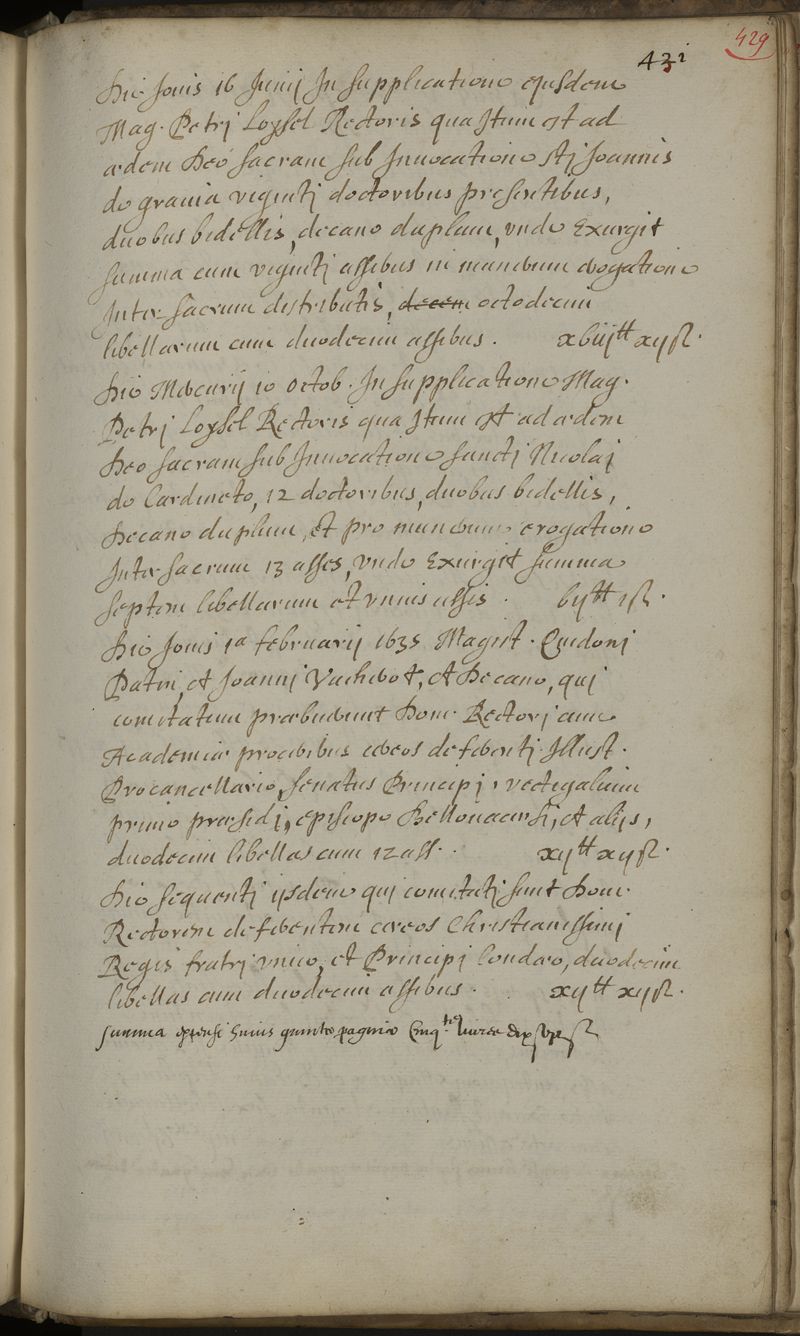 431
429
Die Jovis 16 Junij In supplicatione ejusdem
Mag. Petrj Loysel Rectoris qua Itum est ad
ædem Deo sacram sub Invocatione stj Joannis
de gravia vigintj doctoribus presentibus,
duobus bedellis, decano duplum, unde Exurgit
summa cum vigintj assibus in munerum erogatione
Inter sacrum distributis, decem octodecim
libellarum cum duodecim assibus. xviij# xijs.
Die Mercurij 10 Octob. In supplicatione Mag.
Petrj Loysel Rectoris qua Itum est ad ædem
Deo sacram sub Invocatione sanctj Nicolaj
de Cardineto, 12 doctoribus, duobus bedellis,
Decano duplum, et pro munerum erogatione
Inter sacrum 13 asses, unde Exurgit summa
septem libellarum et unius assis. vij# 1s.
Die Jovis 1a februarij 1635 Magist. Quidonj
Patin, et Joannj Vacherot, et Decano, quj
comitatum præbuerunt Dom. Rectorj cum
Academiæ proceribus cereos deferentj Illust.
Procancellario, senatus Principj, vectigalium
primo præsidj, episcopo Bellovacensi, et alijs,
duodecim libellas cum 12 ass. xij# xijs.
Die sequentj ijsdem quj comitatj sunt Dom.
Rectorem deferentem cereos Christianissimj
Regis fratrj unico, et Principj Condæo, duodecim
libellas cum duodecim assibus. xij# xijs.
summa expensi huius paginæ